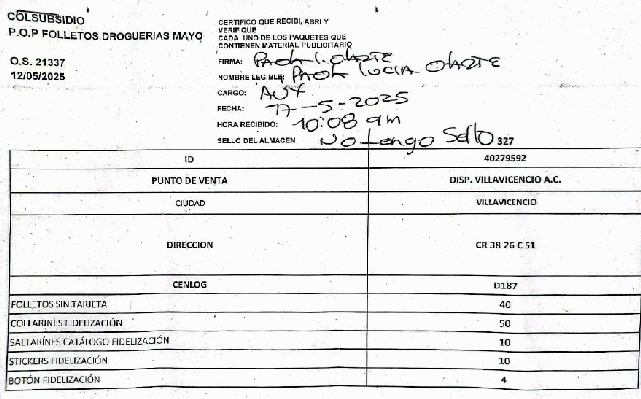 COLSUBSIDIO
P.O.P FOLLETOS DROGUERIAS MAYO
O.S. 21337
12/05/2025
CERTIFICO QUE RECIBI, ABRI Y
VERIFIQUE
CADA UNO DE LOS PAQUETES QUE
CONTIENEN MATERIAL PUBLICITARIO
FIRMA: Paola L. Olarte
NOMBRE LEGIBLE: Paola Lucia Olarte
CARGO: Aux
FECHA: 17-5-2025
HORA RECIBIDO: 10:08 am
SELLO DEL ALMACEN No tengo Sello 327
ID 40279592
PUNTO DE VENTA DISP. VILLAVICENCIO A.C.
CIUDAD VILLAVICENCIO
DIRECCION CR 38 26 C 51
CENLOG D187
FOLLETOS SIN TARJETA 40
COLLARINES FIDELIZACIÓN 50
SALTARINES CATÁLOGO FIDELIZACIÓN 10
STICKERS FIDELIZACIÓN 10
BOTÓN FIDELIZACIÓN 4